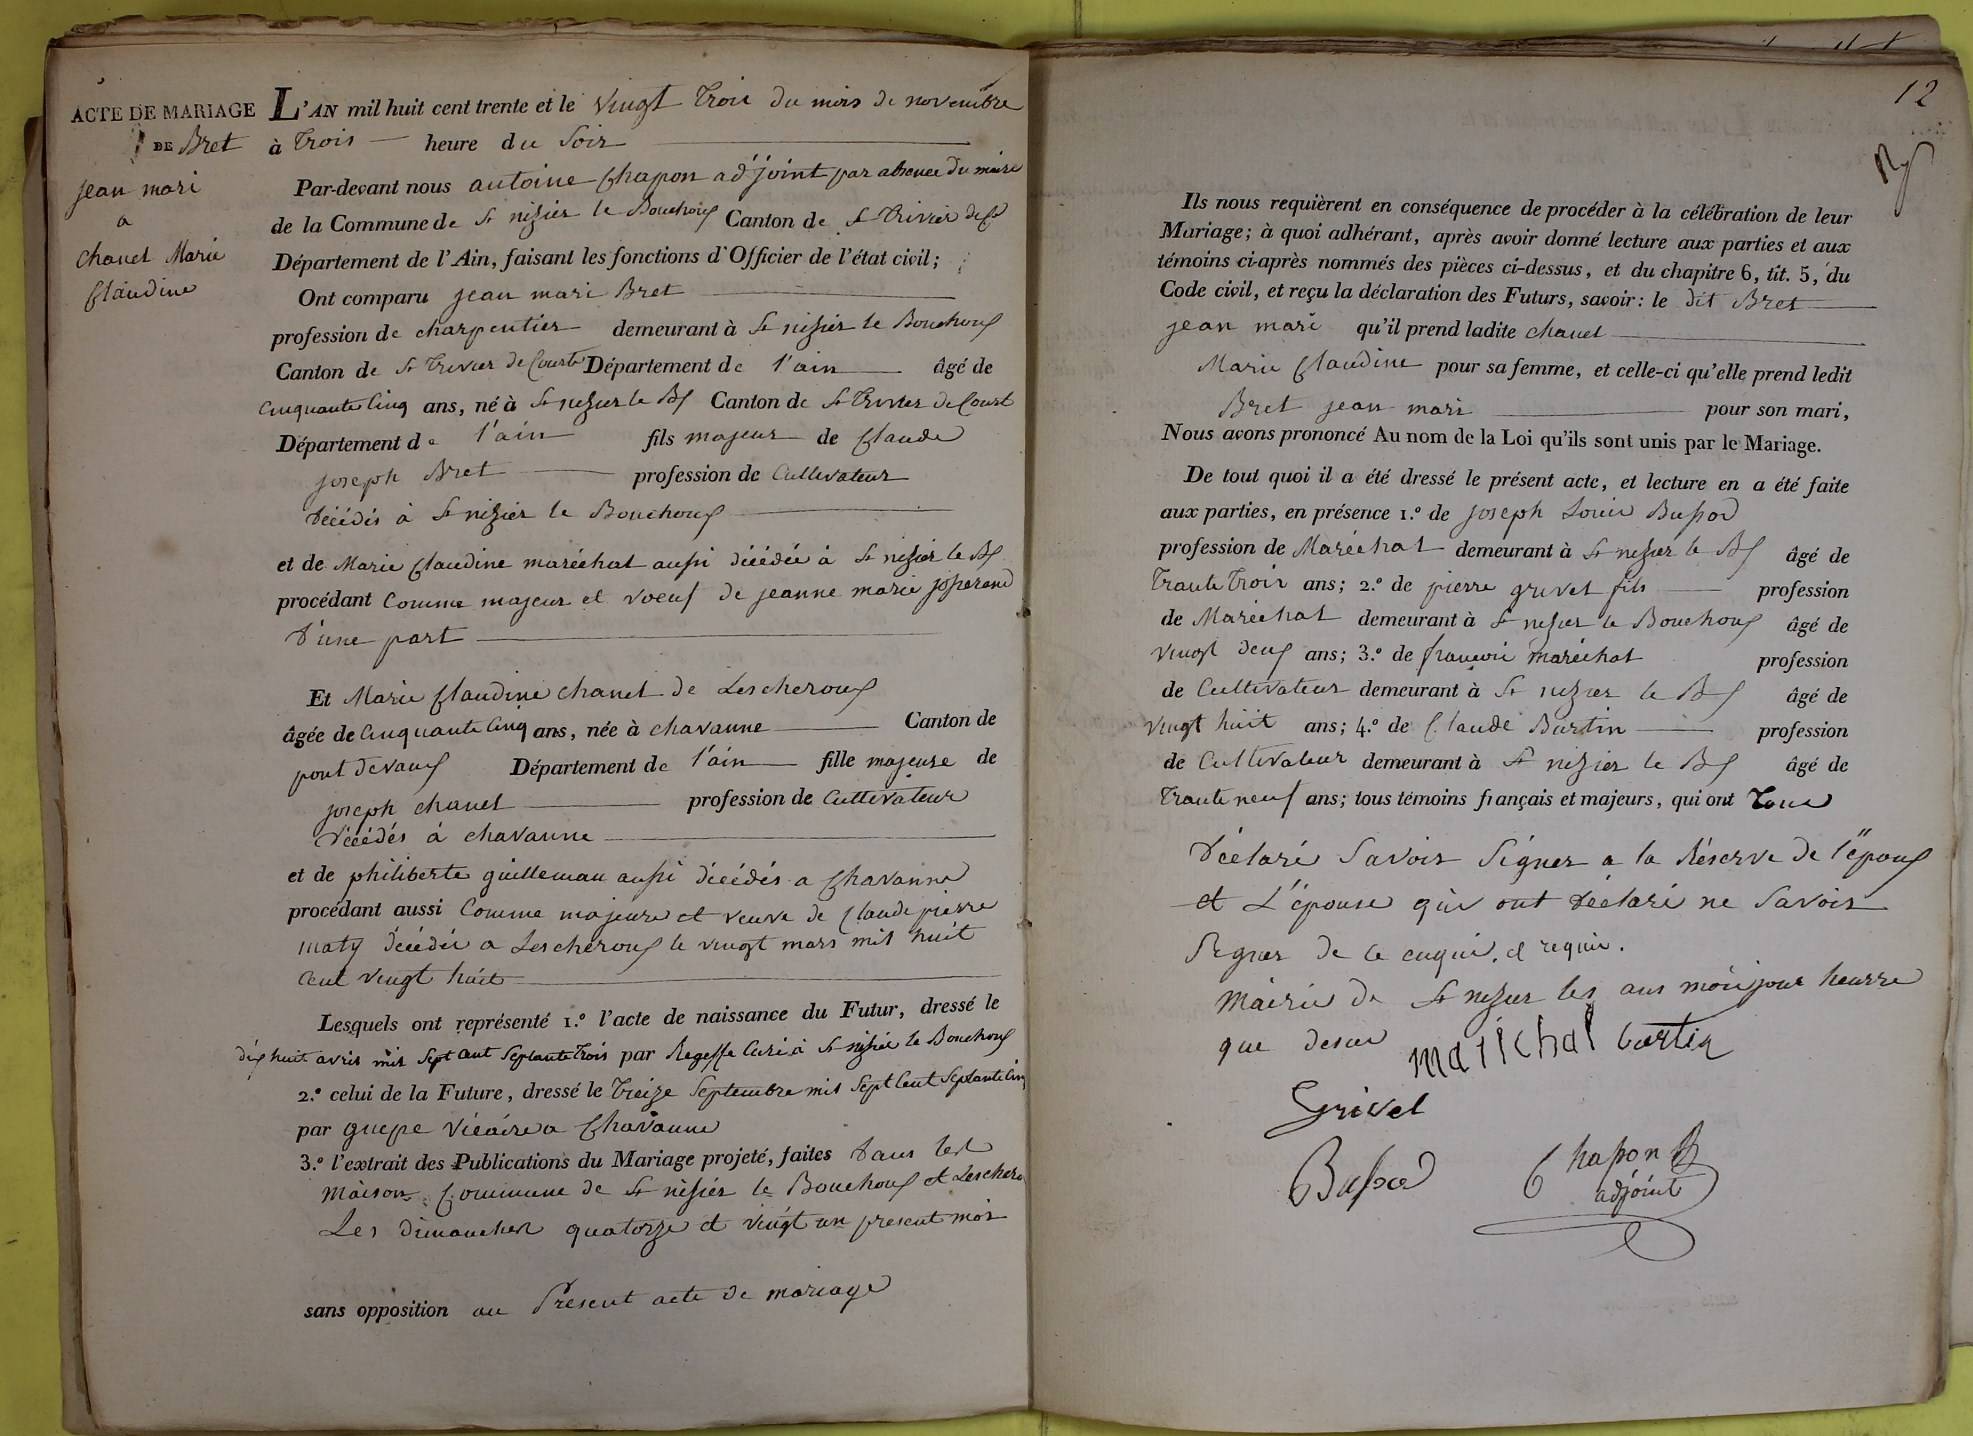 ACTE DE MARIAGE
DE Bret
jean mari
a
chanel Marie
Claudine
L'AN mil huit cent trente et le vingt trois du mois de novembre
à trois heure du soir
Par-devant nous antoine Chapon adjoint par absence du maire
de la Commune de St nizier le Bouchoux Canton de St trivier de Ct
Département de l'Ain, faisant les fonctions d'Officier de l'état civil;
Ont comparu jean mari Bret
profession de charpentier demeurant à St nizier le Bouchoux
Canton de St Trivier de Court Département de l'ain âgé de
cinquante cinq ans, né à St nizier le Bx Canton de St Trivier de Court
Département de l'ain fils majeur de Claude
joseph Bret profession de Cultivateur
décédés à St nizier le Bouchoux
et de Marie Claudine maréchal aussi décédée à St nizier le Bx
procédant Comme majeur et voeuf de jeanne marie josserand
d'une part
Et Marie Claudine chanel de Lescheroux
âgée de cinquante cinq ans, née à chavanne Canton de
pont devaux Département de l'ain fille majeure de
joseph chanel profession de Cultivateur
décédés à chavanne
et de philiberte guilleman aussi décédés a Chavanne
procédant aussi Comme majeure et veuve de Claude pierre
maty décédé a Lescheroux le vingt mars mil huit
cent vingt huit
Lesquels ont représenté 1.º l'acte de naissance du Futur, dressé le
dix huit avris mis sept cent septante trois par Regeffe Curé à St nizier le Bouchoux
2.º celui de la Future, dressé le treize Septembre mis Sept Cent Septante Cinq
par guepe vicaire a Chavanne
3.º l'extrait des Publications du Mariage projeté, faites dans les
maison Commune de St nisiér le Bouchoux et Leschero
Les dimanches quatorze et vingt un present mois
sans opposition au Present acte de mariage
12
Ils nous requièrent en conséquence de procéder à la célébration de leur
Mariage; à quoi adhérant, après avoir donné lecture aux parties et aux
témoins ci-après nommés des pièces ci-dessus, et du chapitre 6, tit. 5, du
Code civil, et reçu la déclaration des Futurs, savoir: le dit Bret
jean mari qu'il prend ladite chanel
Marie Claudine pour sa femme, et celle-ci qu'elle prend ledit
Bret jean mari pour son mari,
Nous avons prononcé Au nom de la Loi qu'ils sont unis par le Mariage.
De tout quoi il a été dressé le présent acte, et lecture en a été faite
aux parties, en présence 1.º de joseph Louis Bussod
profession de Maréchal demeurant à St nizier le Bx âgé de
trante trois ans; 2.º de pierre grivel fils profession
de Maréchal demeurant à St nizier le Bouchoux âgé de
vingt deux ans; 3.º de françois maréchal profession
de Cultivateur demeurant à St nizier le Bx âgé de
vingt huit ans; 4.º de Claude Burtin profession
de Cultivateur demeurant à St nizier le Bx âgé de
trante neuf ans; tous témoins français et majeurs, qui ont tous
déclaré Savoir Signer a la Réserve de l'époux
et L'épouse qui ont déclaré ne Savoir
Signer de ce enquis. et requis.
Mairie de St nizier les ans mois jour heurre
que desus
Marichal burtin
Grivel
Bussod Chapon
adjoint